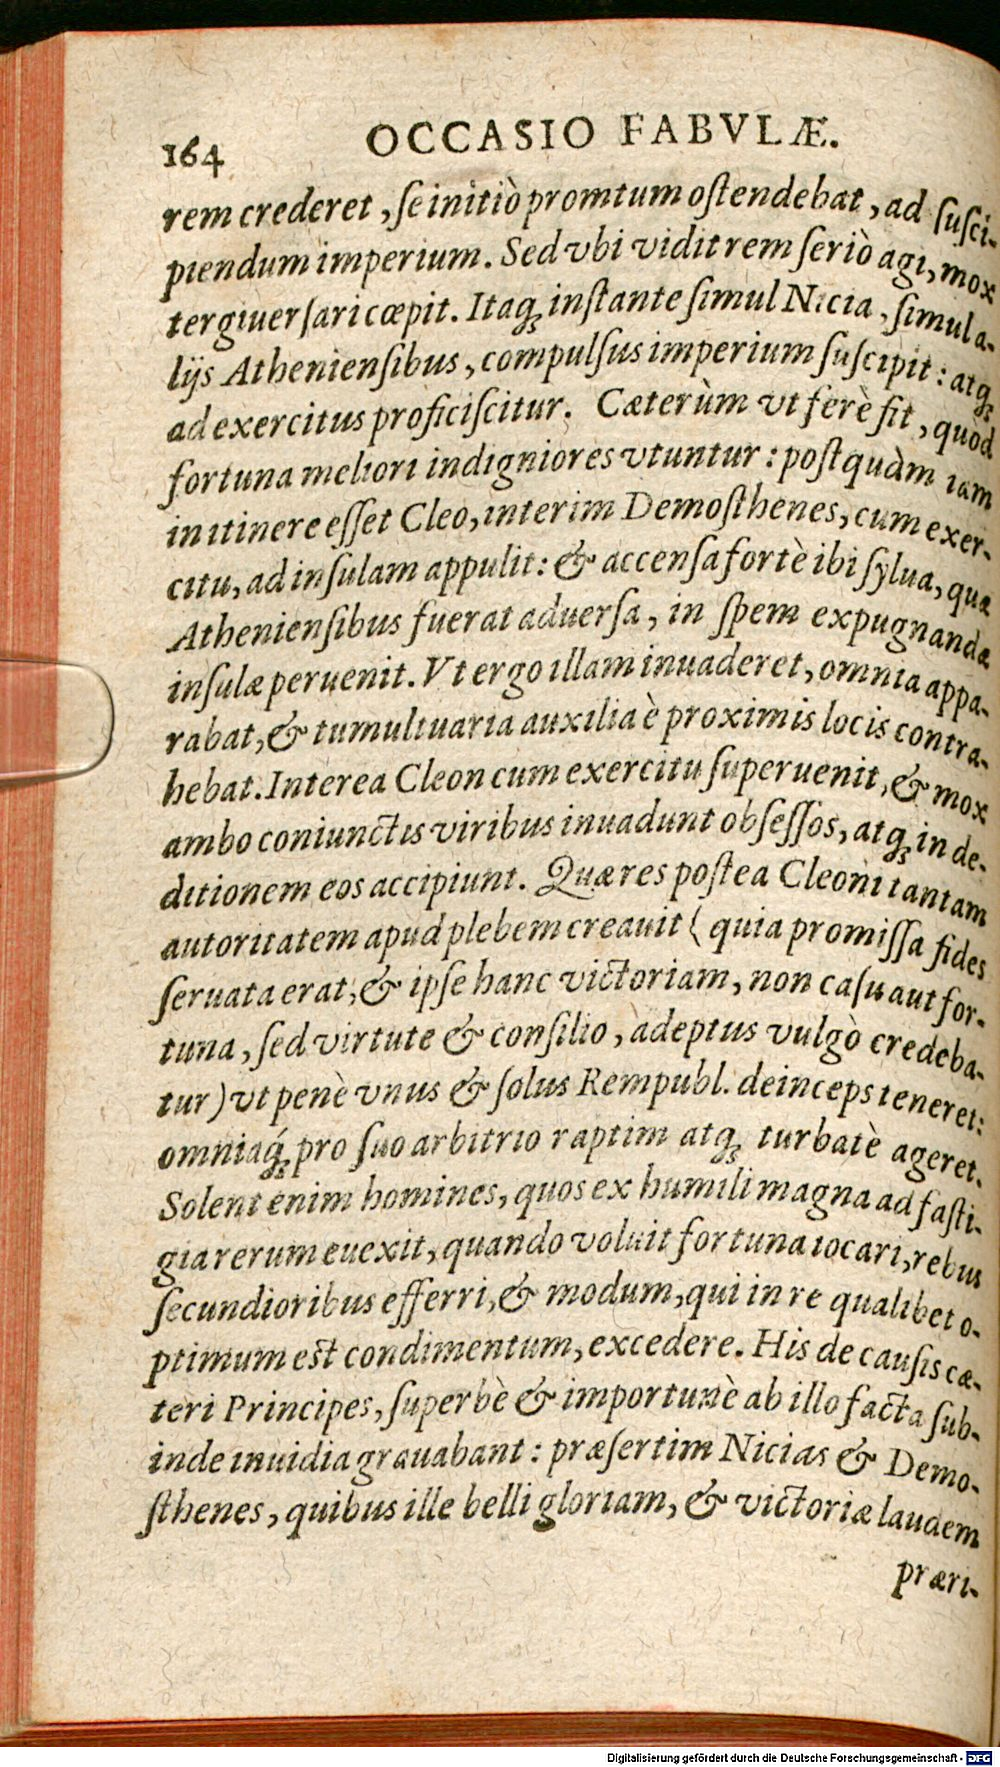 164 OCCASIO FABVLÆ.
rem crederet, ſe initiò promtum oſtendebat, ad ſuſci-
piendum imperium. Sed vbi vidit rem ſeriò agi, mox
tergiuerſari cœpit. Itaq; inſtante ſimul Nicia, ſimul a-
lijs Athenienſibus, compulſus imperium ſuſcipit: atq;
ad exercitus proficiſcitur. Cæterùm vt ferè fit, quòd
fortuna meliori indigniores vtuntur: poſtquàm iam
in itinere eſſet Cleo, interim Demoſthenes, cum exer-
citu, ad inſulam appulit: & accenſa fortè ibi ſylua, quæ
Athenienſibus fuerat aduerſa, in ſpem expugnandæ
inſulæ peruenit. Vt ergo illam inuaderet, omnia appa-
rabat, & tumultuaria auxilia è proximis locis contra-
hebat. Interea Cleon cum exercitu ſuperuenit, & mox
ambo coniunctis viribus inuadunt obſeſſos, atq; in de-
ditionem eos accipiunt. Quæ res poſtea Cleoni tantam
autoritatem apud plebem creauit ( quia promiſſa fides
ſeruata erat, & ipſe hanc victoriam, non caſu aut for-
tuna, ſed virtute & conſilio, adeptus vulgò credeba-
tur) vt penè vnus & ſolus Rempubl. deinceps teneret:
omniaq́; pro ſuo arbitrio raptim atq; turbatè ageret.
Solent enim homines, quos ex humili magna ad faſti-
gia rerum euexit, quando voluit fortuna iocari, rebus
ſecundioribus efferri, & modum, qui in re qualibet o-
ptimum est condimentum, excedere. His de cauſis cæ-
teri Principes, ſuperbè & importunè ab illo facta ſub-
inde inuidia grauabant: præſertim Nicias & Demo-
ſthenes, quibus ille belli gloriam, & victoriæ laudem
præri-
Digitalisierung gefördert durch die Deutsche Forschungsgemeinschaft - DFG